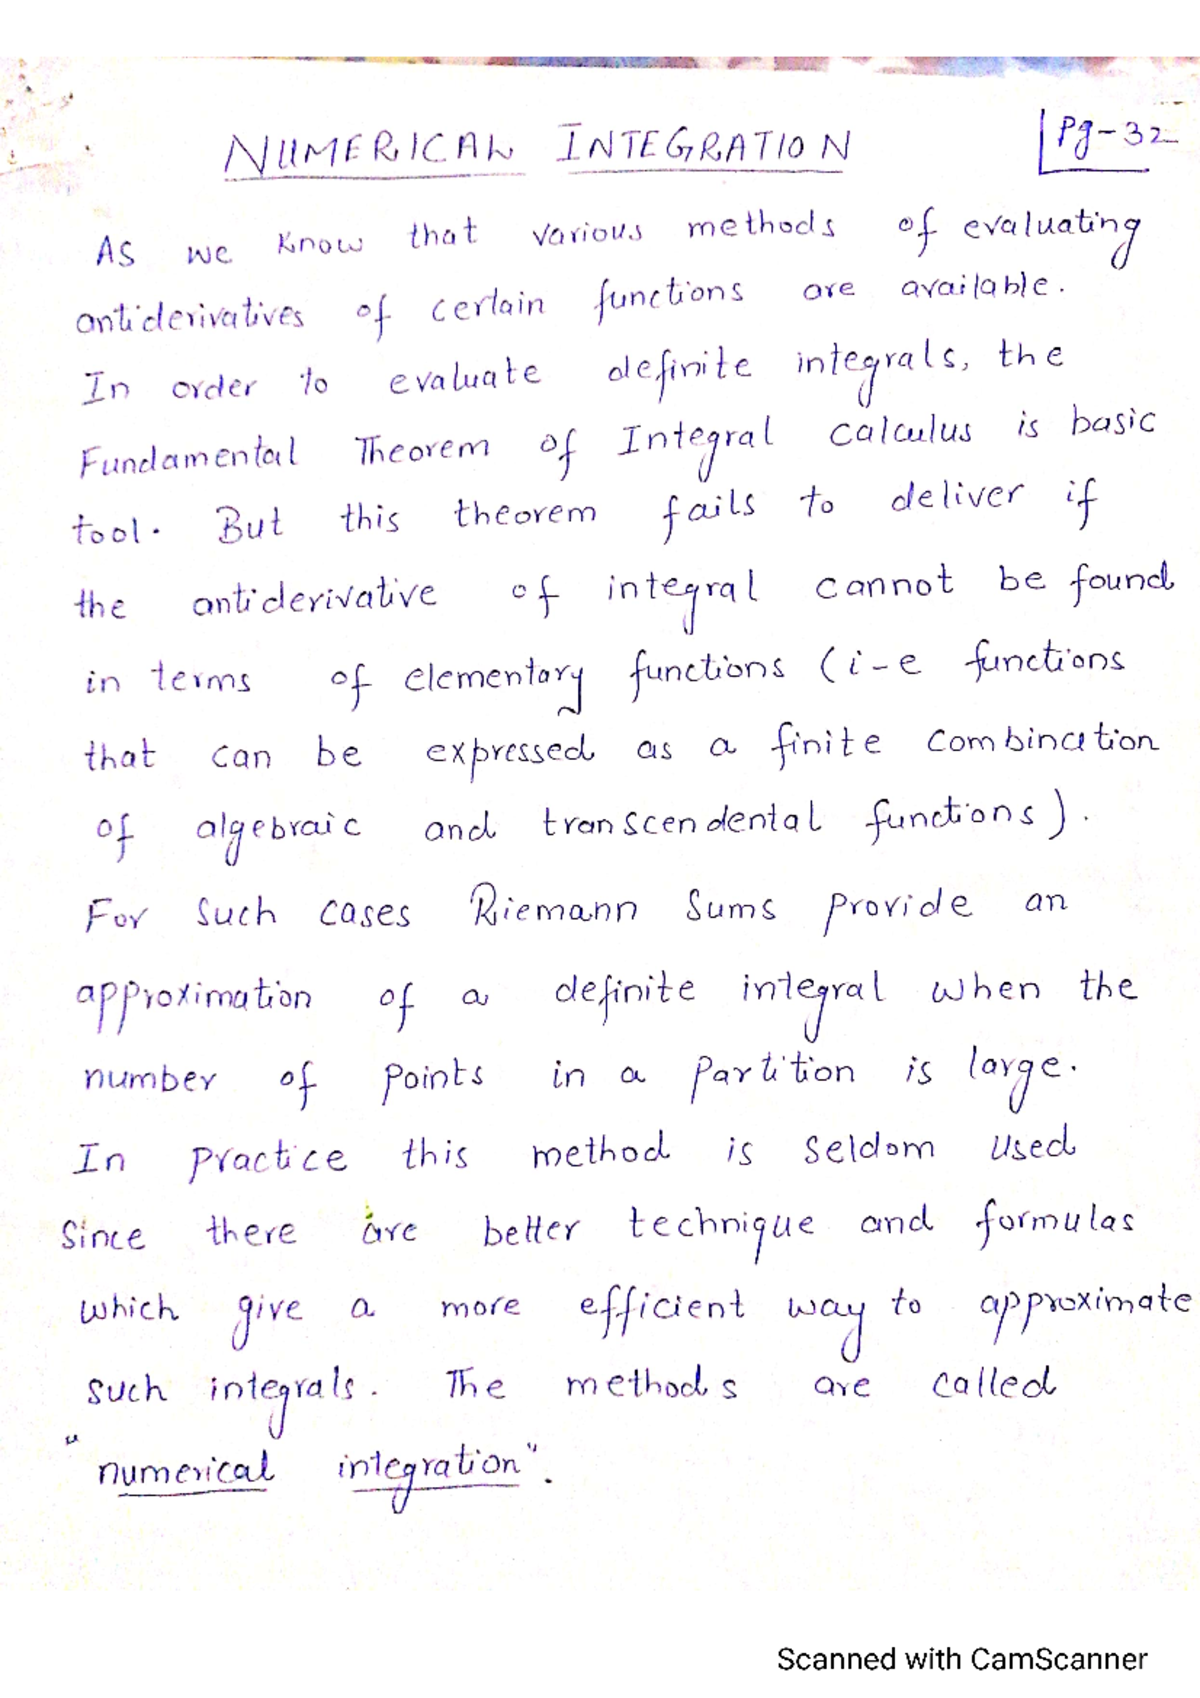 NUMERICAL INTEGRATION
Pg-32
As we know that various methods of evaluating
antiderivatives of certain functions are available.
In order to evaluate definite integrals, the
Fundamental Theorem of Integral calculus is basic
tool. But this theorem fails to deliver if
the antiderivative of integral cannot be found
in terms of elementary functions (i-e functions
that can be expressed as a finite combination
of algebraic and transcendental functions).
For such cases Riemann Sums provide an
approximation of a definite integral when the
number of points in a partition is large.
In practice this method is seldom used
Since there are better technique and formulas
which give a more efficient way to approximate
such integrals. The methods are called
"numerical integration".
Scanned with CamScanner